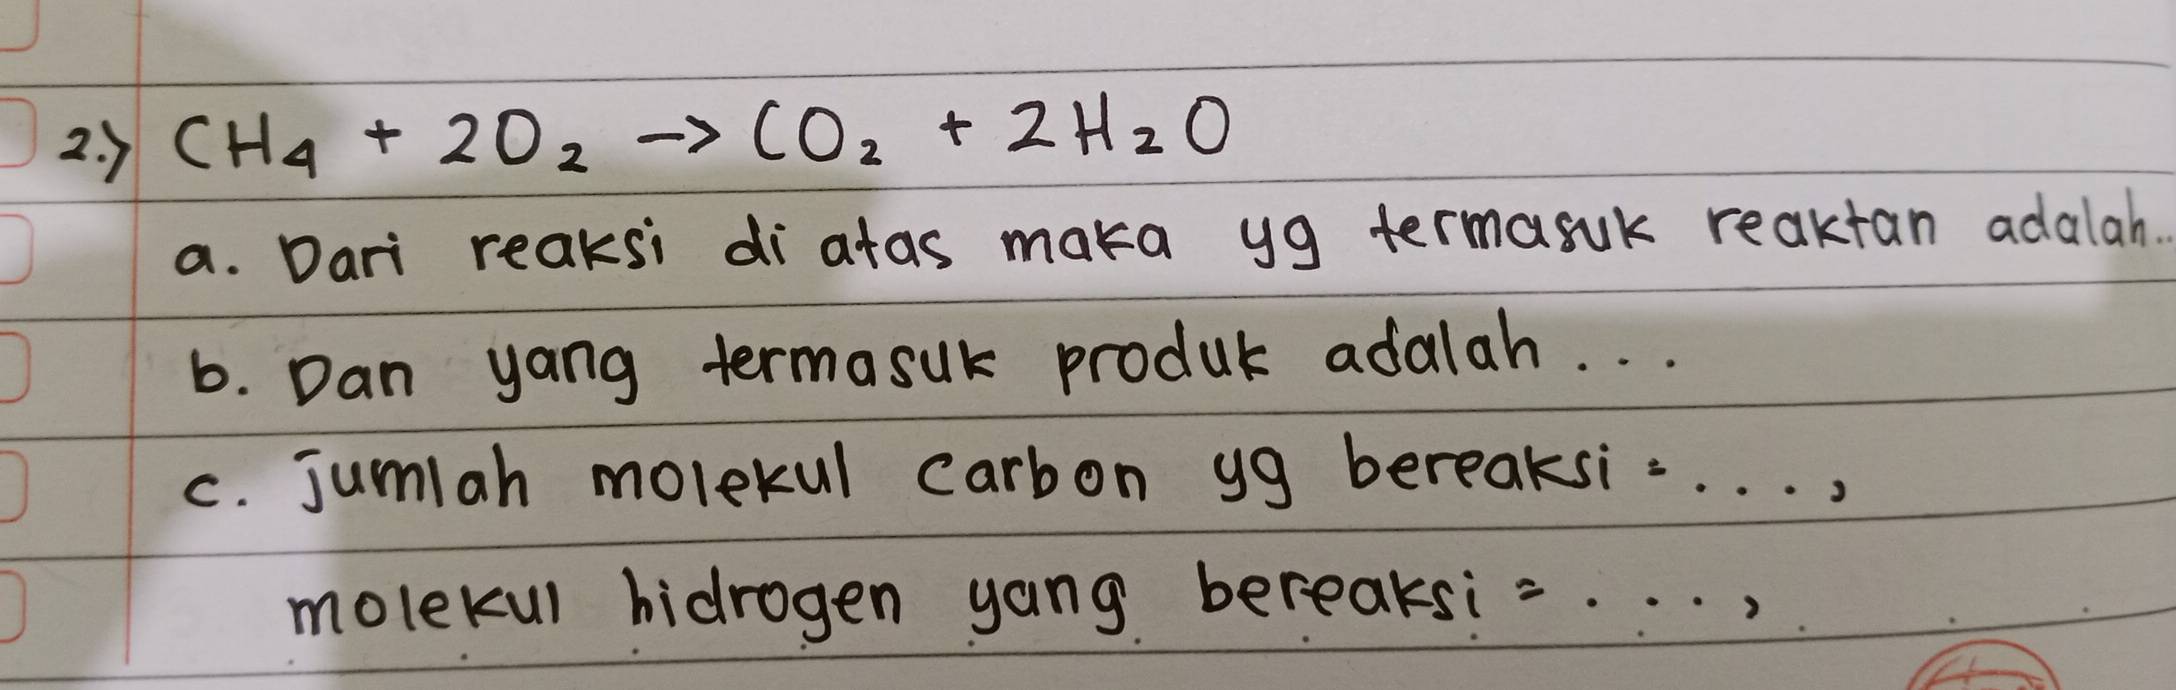 2.) CH₄ + 2O₂ → CO₂ + 2H₂O
a. Dari reaksi di atas maka yg termasuk reaktan adalah..
b. Dan yang termasuk produk adalah...
c. Jumlah molekul carbon yg bereaksi = ....,
molekul hidrogen yang bereaksi = ....,